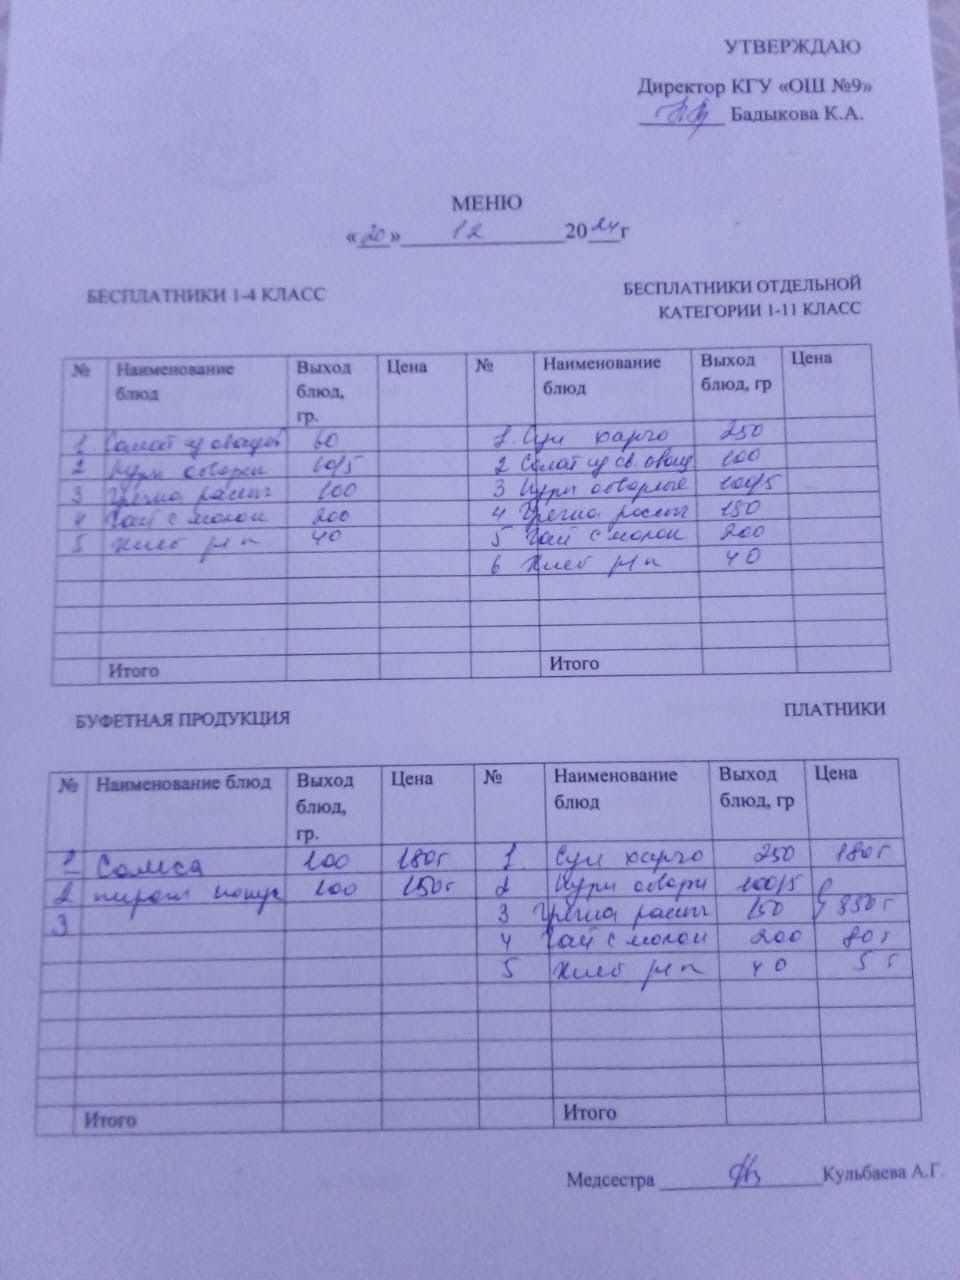 УТВЕРЖДАЮ
Директор КГУ «ОШ №9»
Бадыкова К.А.
МЕНЮ
«20» 12 2024г
БЕСПЛАТНИКИ 1-4 КЛАСС
БЕСПЛАТНИКИ ОТДЕЛЬНОЙ
КАТЕГОРИИ 1-11 КЛАСС
№ Наименование блюд Выход блюд, гр. Цена № Наименование блюд Выход блюд, гр Цена
1 Салат из овощей 60 1. Суп харчо 250
2 Куры отварн 60/5 2 Салат из св. овощ 100
3 Гречка рассып 100 3 Куры отварные 100/5
4 Чай с молок 200 4 Гречка рассып 150
5 Хлеб рж п 40 5 Чай с молок 200
6 Хлеб рж п 40
Итого Итого
БУФЕТНАЯ ПРОДУКЦИЯ
ПЛАТНИКИ
№ Наименование блюд Выход блюд, гр. Цена № Наименование блюд Выход блюд, гр Цена
1 Самса 100 180т 1. Суп харчо 250 180т
2 пирож 100 150т 2 Куры отварн 100/5
3 3 Гречка рассып 150 350т
4 Чай с молок 200 80т
5 Хлеб рж п 40 5т
Итого Итого
Медсестра Кульбаева А.Г.